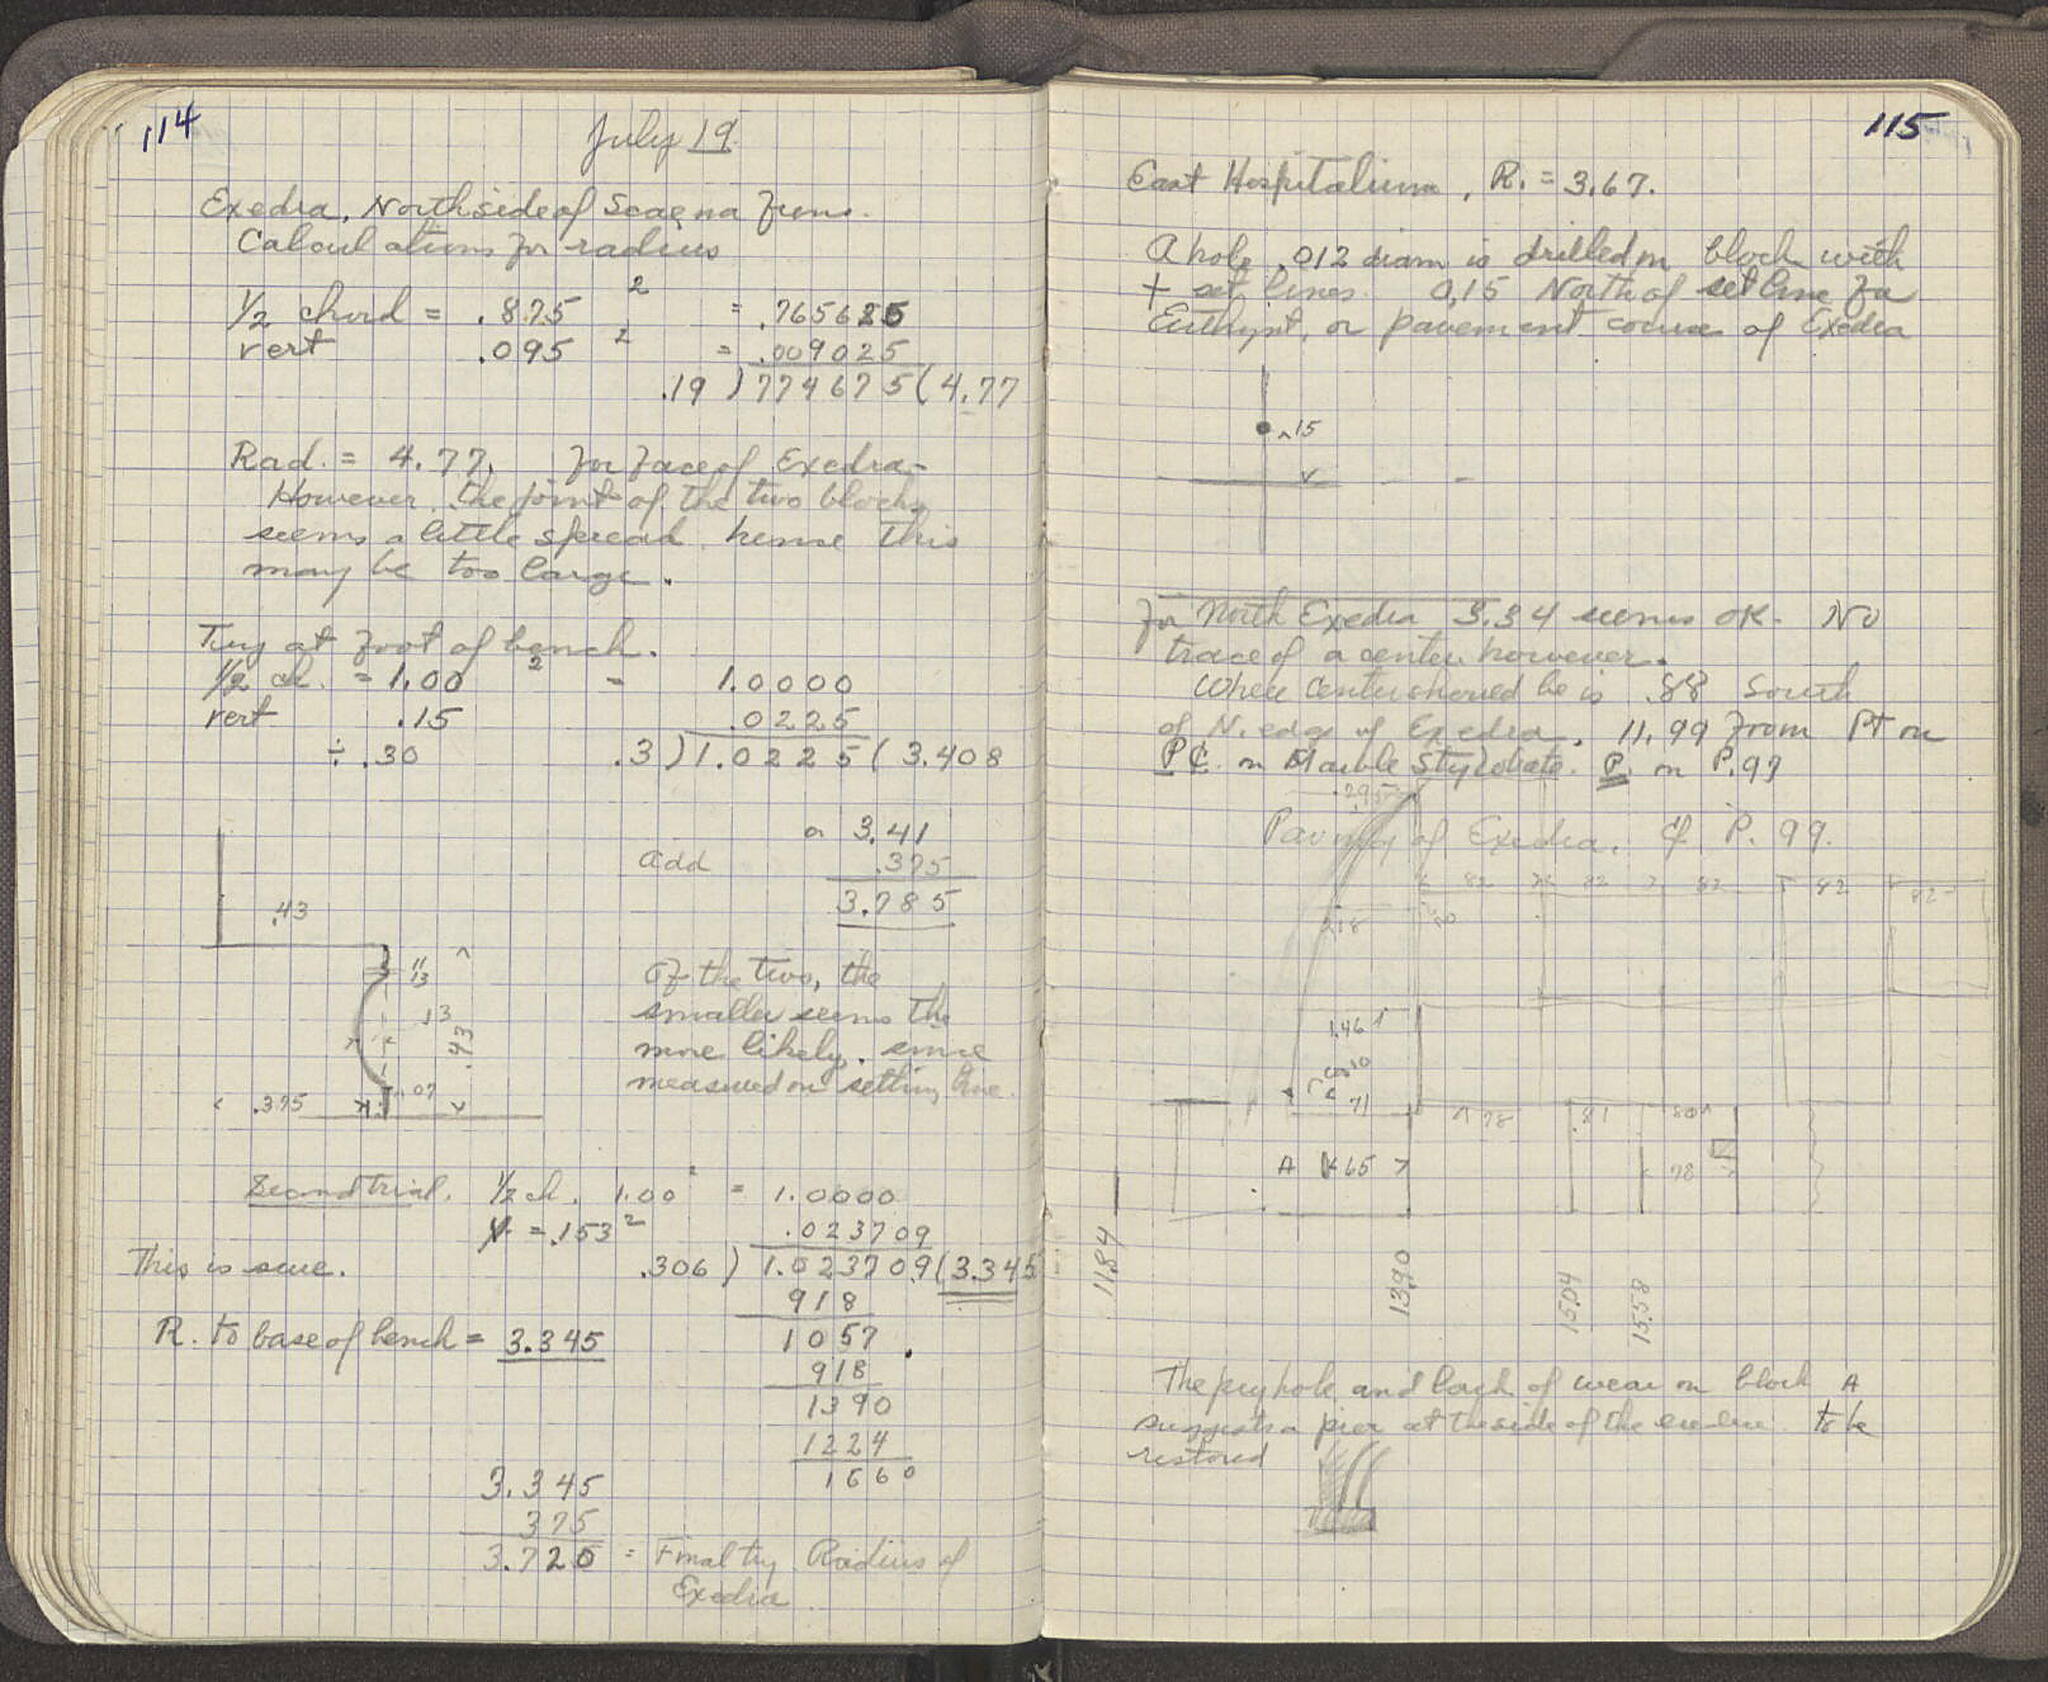 114
July 19
Exedra, North side of Scaena Frons.
Calculations for radius
1/2 chord = .875² = .765625
vert .095² = .009025
.19 ) 774675 ( 4.77
Rad. = 4.77, for face of Exedra.
However, the joint of the two blocks
seems a little spread hense this
may be too large.
Try at foot of bench.
1/2 ch. = 1.00² = 1.0000
vert .15 .0225
÷ .30 .3 ) 1.0225 ( 3.408
or 3.41
add .375
3.785
.43
.13
.43
.07
.375
Of the two, the
smaller seems the
more likely. since
measured on setting line.
Second trial. 1/2 ch. 1.00² = 1.0000
V = .153² .023709
This is sure. .306 ) 1.023709 ( 3.345
918
R. to base of bench = 3.345 1057
918
1390
1224
1660
3.345
375
3.720 = Final try Radius of
Exedra
115
East Hospitalium, R. = 3.67.
A hole .012 diam is drilled on block with
+ set lines. 0,15 North of set line for
Euthynt, or pavement course of Exedra
.15
For North Exedra 3.34 seems OK. No
trace of a center however.
Where center should be is .88 South
of N. edge of Exedra. 11.99 from Pt on
P ℄. on Marble Stylobate. P. on P.97
.295
Paving of Exedra. cf P. 99.
82 82 82 82 82
218 80
1.46
71 78 81 80
A 65 78
11.84
13.90
15.04
15.58
The pry hole and lack of wear on block A
suggests a pier at the side of the to be
restored